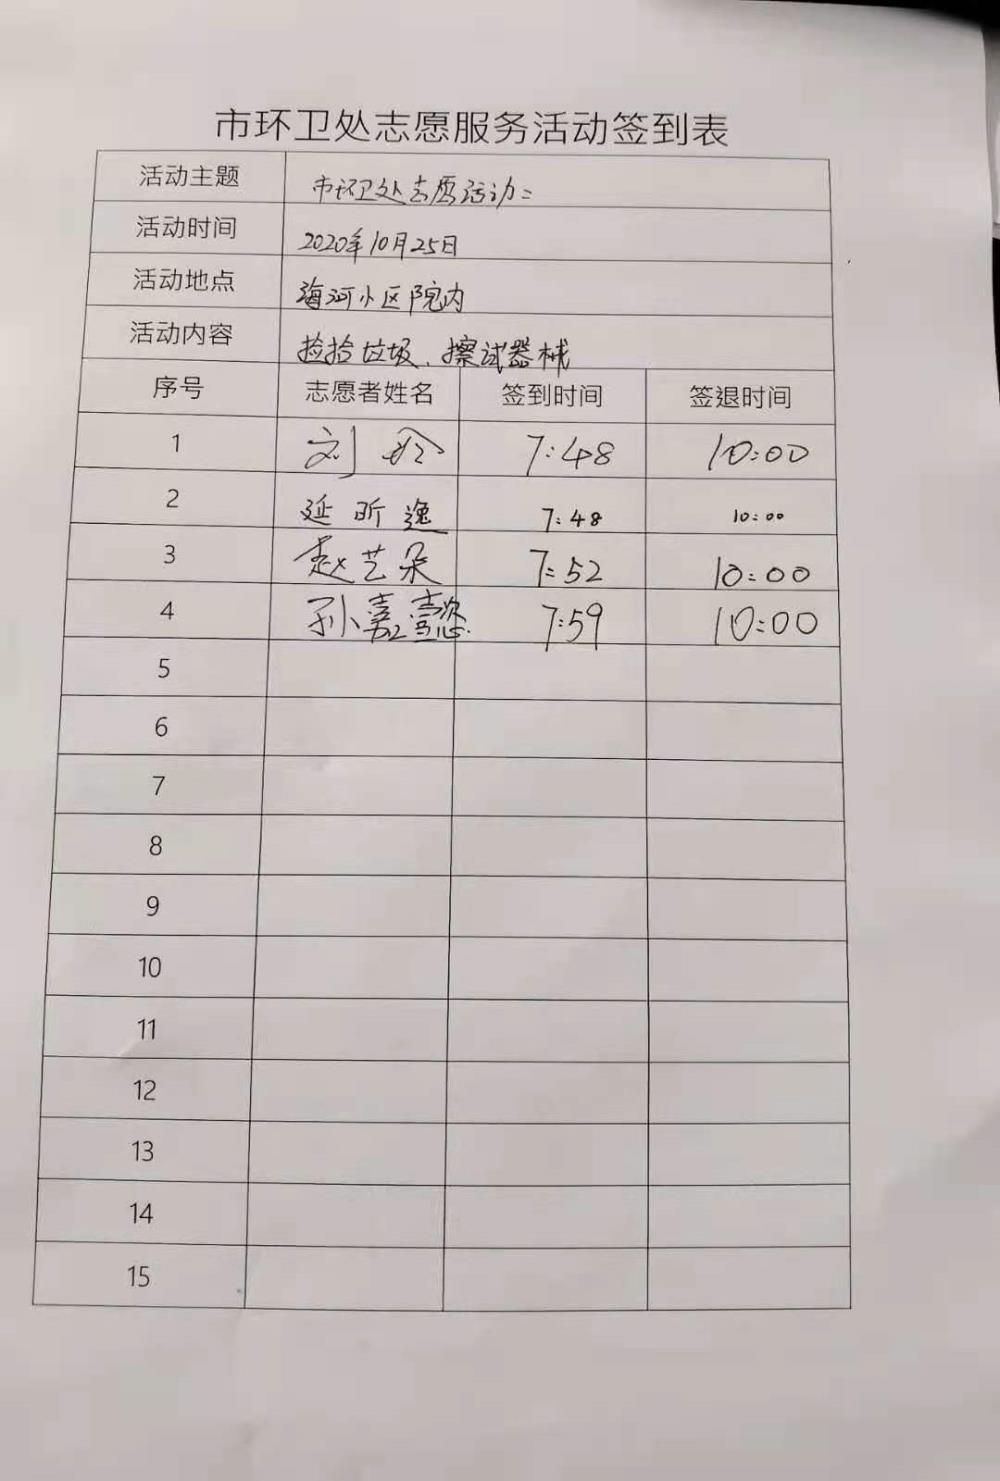 市环卫处志愿服务活动签到表
活动主题 市环卫处志愿活动二
活动时间 2020年10月25日
活动地点 海河小区院内
活动内容 捡拾垃圾、擦试器械
序号 志愿者姓名 签到时间 签退时间
1 刘玲 7:48 10:00
2 延昕逸 7:48 10:00
3 赵艺朵 7:52 10:00
4 孙嘉懿 7:59 10:00
5
6
7
8
9
10
11
12
13
14
15